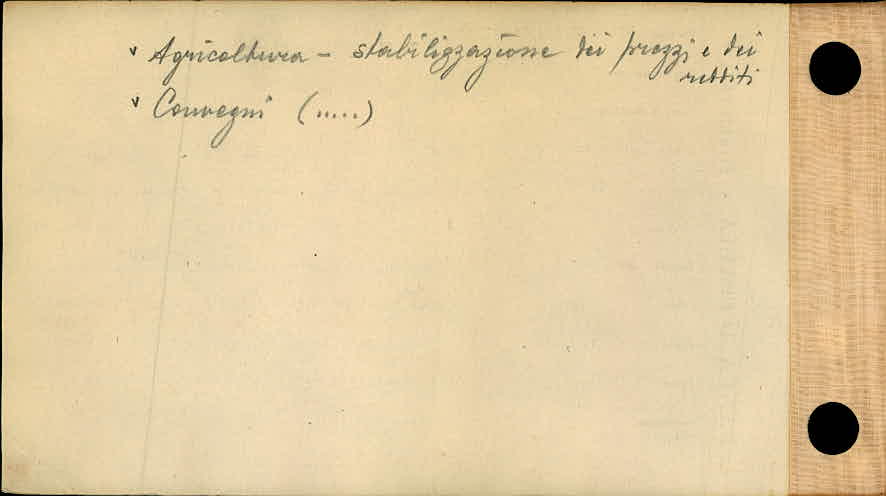 v Agricoltura - stabilizzazione dei prezzi e dei
redditi
v Convegni (.....)